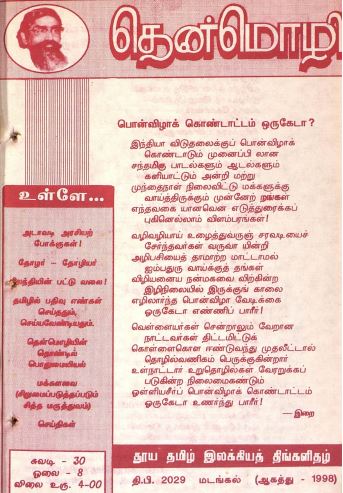 தென்மொழி
பொன்விழாக் கொண்டாட்டம் ஒருகேடா?
இந்தியா விடுதலைக்குப் பொன்விழாக்
கொண்டாடும் முனைப்பி லான
சந்தமிகு பாடல்களும் ஆடல்களும்
களியாட்டும் அன்றி மற்று
முந்தைநாள் நிலைவிட்டு மக்களுக்கு
வாய்த்திருக்கும் முன்னேற்
எந்தவகை யானவென எடுத்துரைக்கப்
புகினெல்லாம் விளம்பரங்கள்!
வழிவழியாய் உழைத்துவருஞ் சரவடியைச்
சேர்ந்தவர்கள் வருவா யின்றி
அழிபசியைத் தாமாற்ற மாட்டாமல்
ஐம்பதுரு வாய்க்குத் தங்கள்
விழியனைய நன்மகவை விற்கின்ற
இழிநிலையில் இருக்குங் காலை
எழிலார்ந்த பொன்விழா வேடிக்கை
ஒருகேடா எண்ணிப் பாரீர்!
வெள்ளையர்கள் சென்றாலும் வேறான
நாட்டவர்கள் திட்டமிட்டுக்
கொள்ளைகொள ஈண்டுவந்து முதலீட்டால்
தொழில்வணிகம் பெருக்குகின்றார்
உள்நாட்டார் உறுதொழில்கள் வேரறுக்கப்
படுகின்ற நிலைமைகண்டும்
ஒள்ளியசீர்ப் பொன்விழாக் கொண்டாட்டம்
ஒருகேடா உணர்ந்து பாரீர்!
— இறை
உள்ளே...
அடாவடி அரசியற்
போக்குகள்!
தோழர் – தோழியர்
பட்டு வலை!
தமிழில் பதிவு எண்கள்
செய்ததும்,
செய்யவேண்டியதும்.
தென்மொழியின்
தொண்டிய்
பொதுமையியல்
மக்களவை
(சிறுமைப்படுத்தப்படும்
சித்த மருத்துவம்)
செய்திகள்
சுவடி - 30
ஓலை - 8
விலை உரு. 4-00
தூய தமிழ் இலக்கியத் திங்களிதழ்
தி.பி. 2029 மடங்கல் (ஆகத்து - 1998)